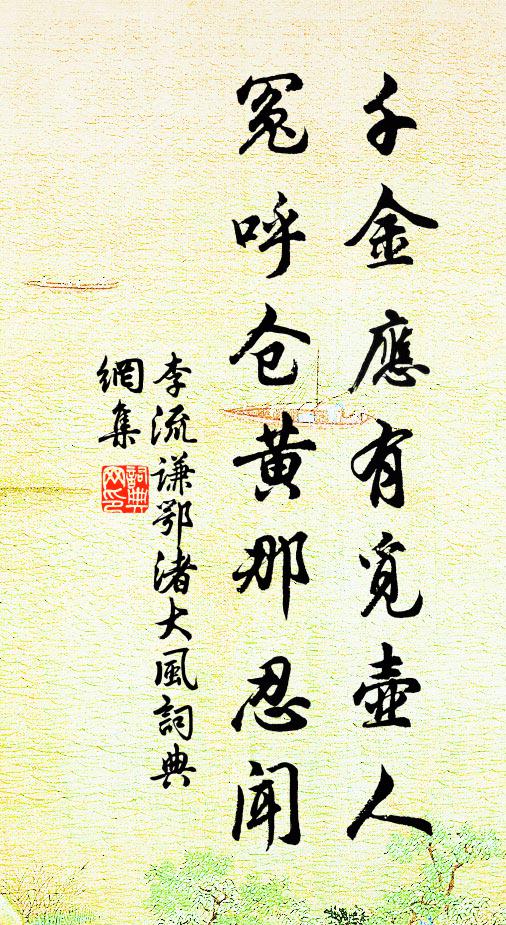 千金應有覓壺人
冤呼仓黄那忍闻
李流谦鄂渚大風詞典
網集
詞典
网印